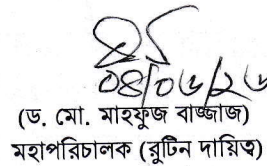 ০৪/০৬/২৬
(ড. মো. মাহফুজ বাজ্জাজ)
মহাপরিচালক (রুটিন দায়িত্ব)